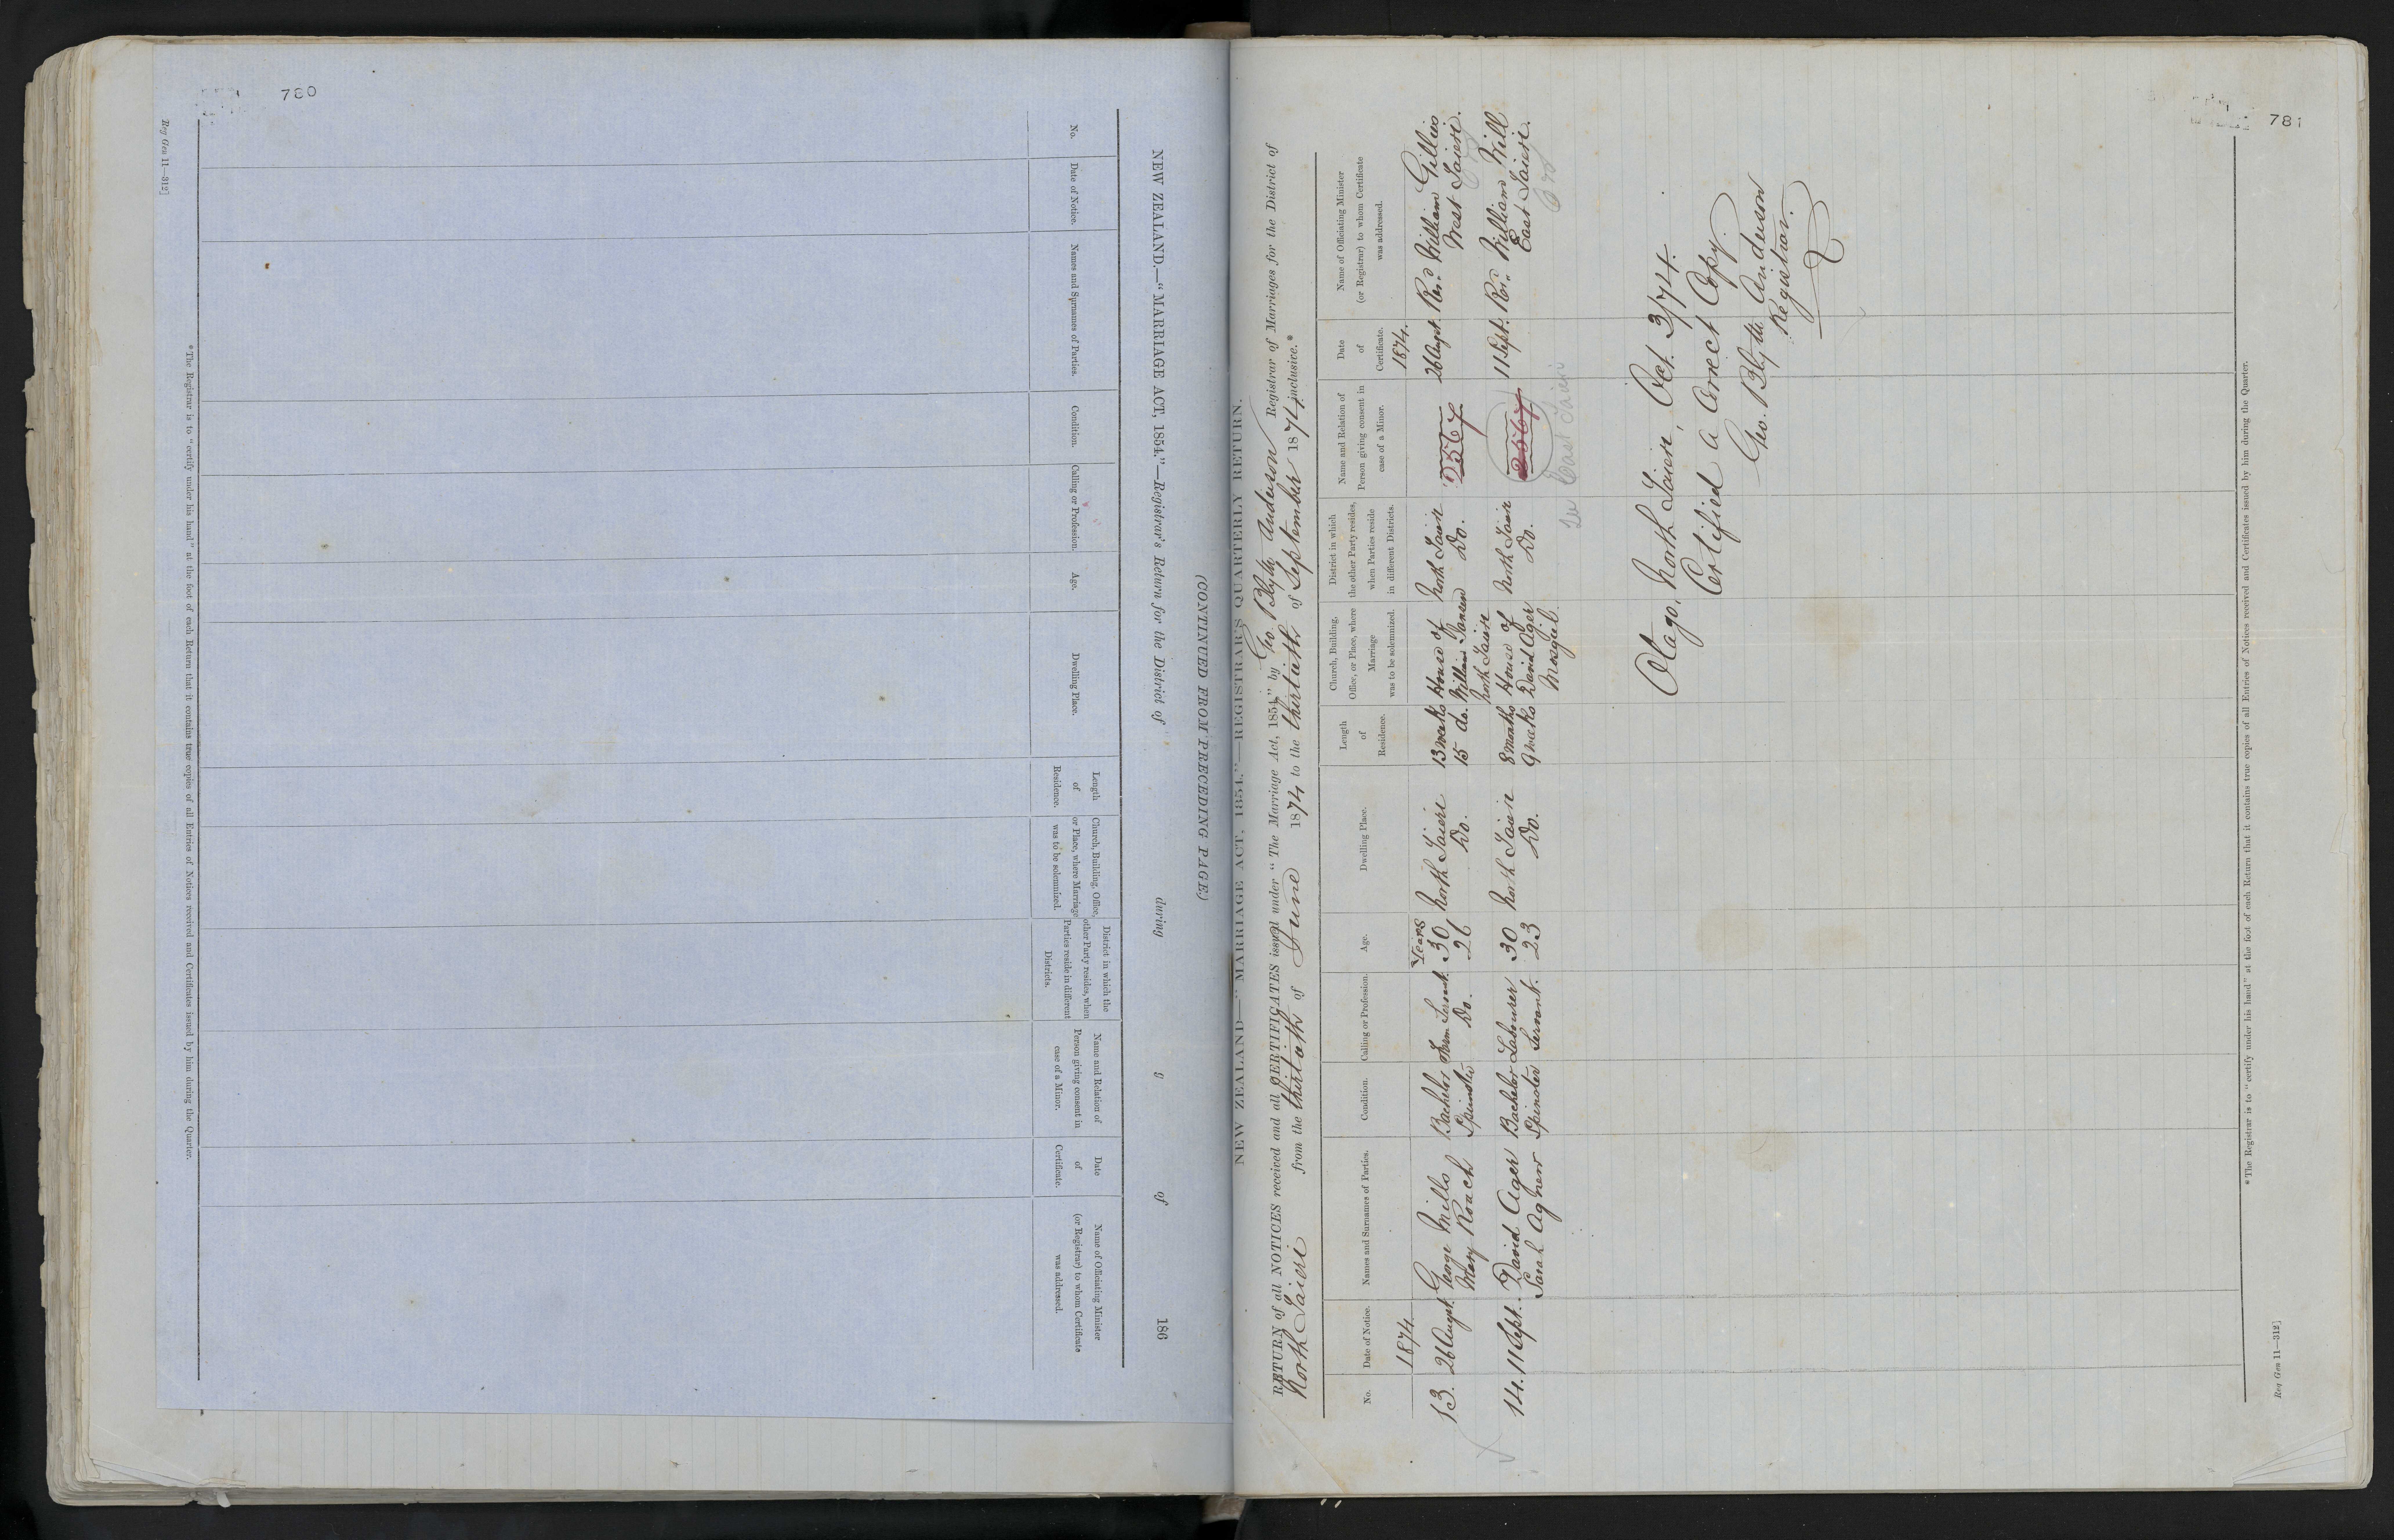 780
(CONTINUED FROM PRECEDING PAGE.)
NEW ZEALAND.—"MARRIAGE ACT, 1854."—Registrar's Return for the District of during of 186
No.
Date of Notice.
Names and Surnames of Parties.
Condition.
Calling or Profession.
Age.
Dwelling Place.
Length
of
Residence.
Church, Building, Office,
or Place, where Marriage
was to be solemnized.
District in which the
other Party resides, when
Parties reside in different
Districts.
Name and Relation of
Person giving consent in
case of a Minor.
Date
of
Certificate.
Name of Officiating Minister
(or Registrar) to whom Certificate
was addressed.
*The Registrar is to "certify under his hand" at the foot of each Return that it contains true copies of all Entries of Notices received and Certificates issued by him during the Quarter.
Reg Gen 11—312]
781
NEW ZEALAND—"MARRIAGE ACT, 1854."—REGISTRAR'S QUARTERLY RETURN.
RETURN of all NOTICES received and all CERTIFICATES issued under "The Marriage Act, 1854," by Geo. Blyth Anderson Registrar of Marriages for the District of
North Taieri from the thirtieth of June 1874 to the thirtieth of September 1874 inclusive.*
No.
Date of Notice.
Names and Surnames of Parties.
Condition.
Calling or Profession.
Age.
Dwelling Place.
Length
of
Residence.
Church, Building,
Office, or Place, where
Marriage
was to be solemnized.
District in which
the other Party resides,
when Parties reside
in different Districts.
Name and Relation of
Person giving consent in
case of a Minor.
Date
of
Certificate.
Name of Officiating Minister
(or Registrar) to whom Certificate
was addressed.
1874 Years 1874.
13. 26 Augst. George Mills Bachelor Farm Servant 30 North Taieri 13 weeks House of North Taieri 2567 26 Augst. Revd. William Gillies
Mary Roach Spinster Do. 26 Do. 15 do. William Do. West Taieri.
North Taieri
14. 11 Sept. David Ager Bachelor Labourer 30 North Taieri 8 months House of North Taieri 2567 11 Sept. Revd. William Will
Sarah Agnew Spinster Servant. 23 Do. 9 weeks David Ager Do. East Taieri.
Mosgiel.
East Taieri
Otago, North Taieri, Oct. 3/74.
Certified a Correct Copy.
Geo. Blyth Anderson
Registrar.
*The Registrar is to "certify under his hand" at the foot of each Return that it contains true copies of all Entries of Notices received and Certificates issued by him during the Quarter.
Reg Gen 11—312]